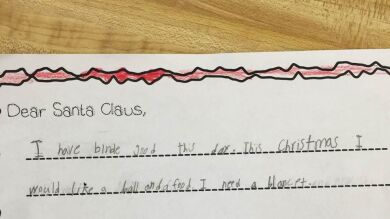 Dear Santa Claus,
I have binde good this day. This Christmas I
would like a ball and a food. I need a blancet